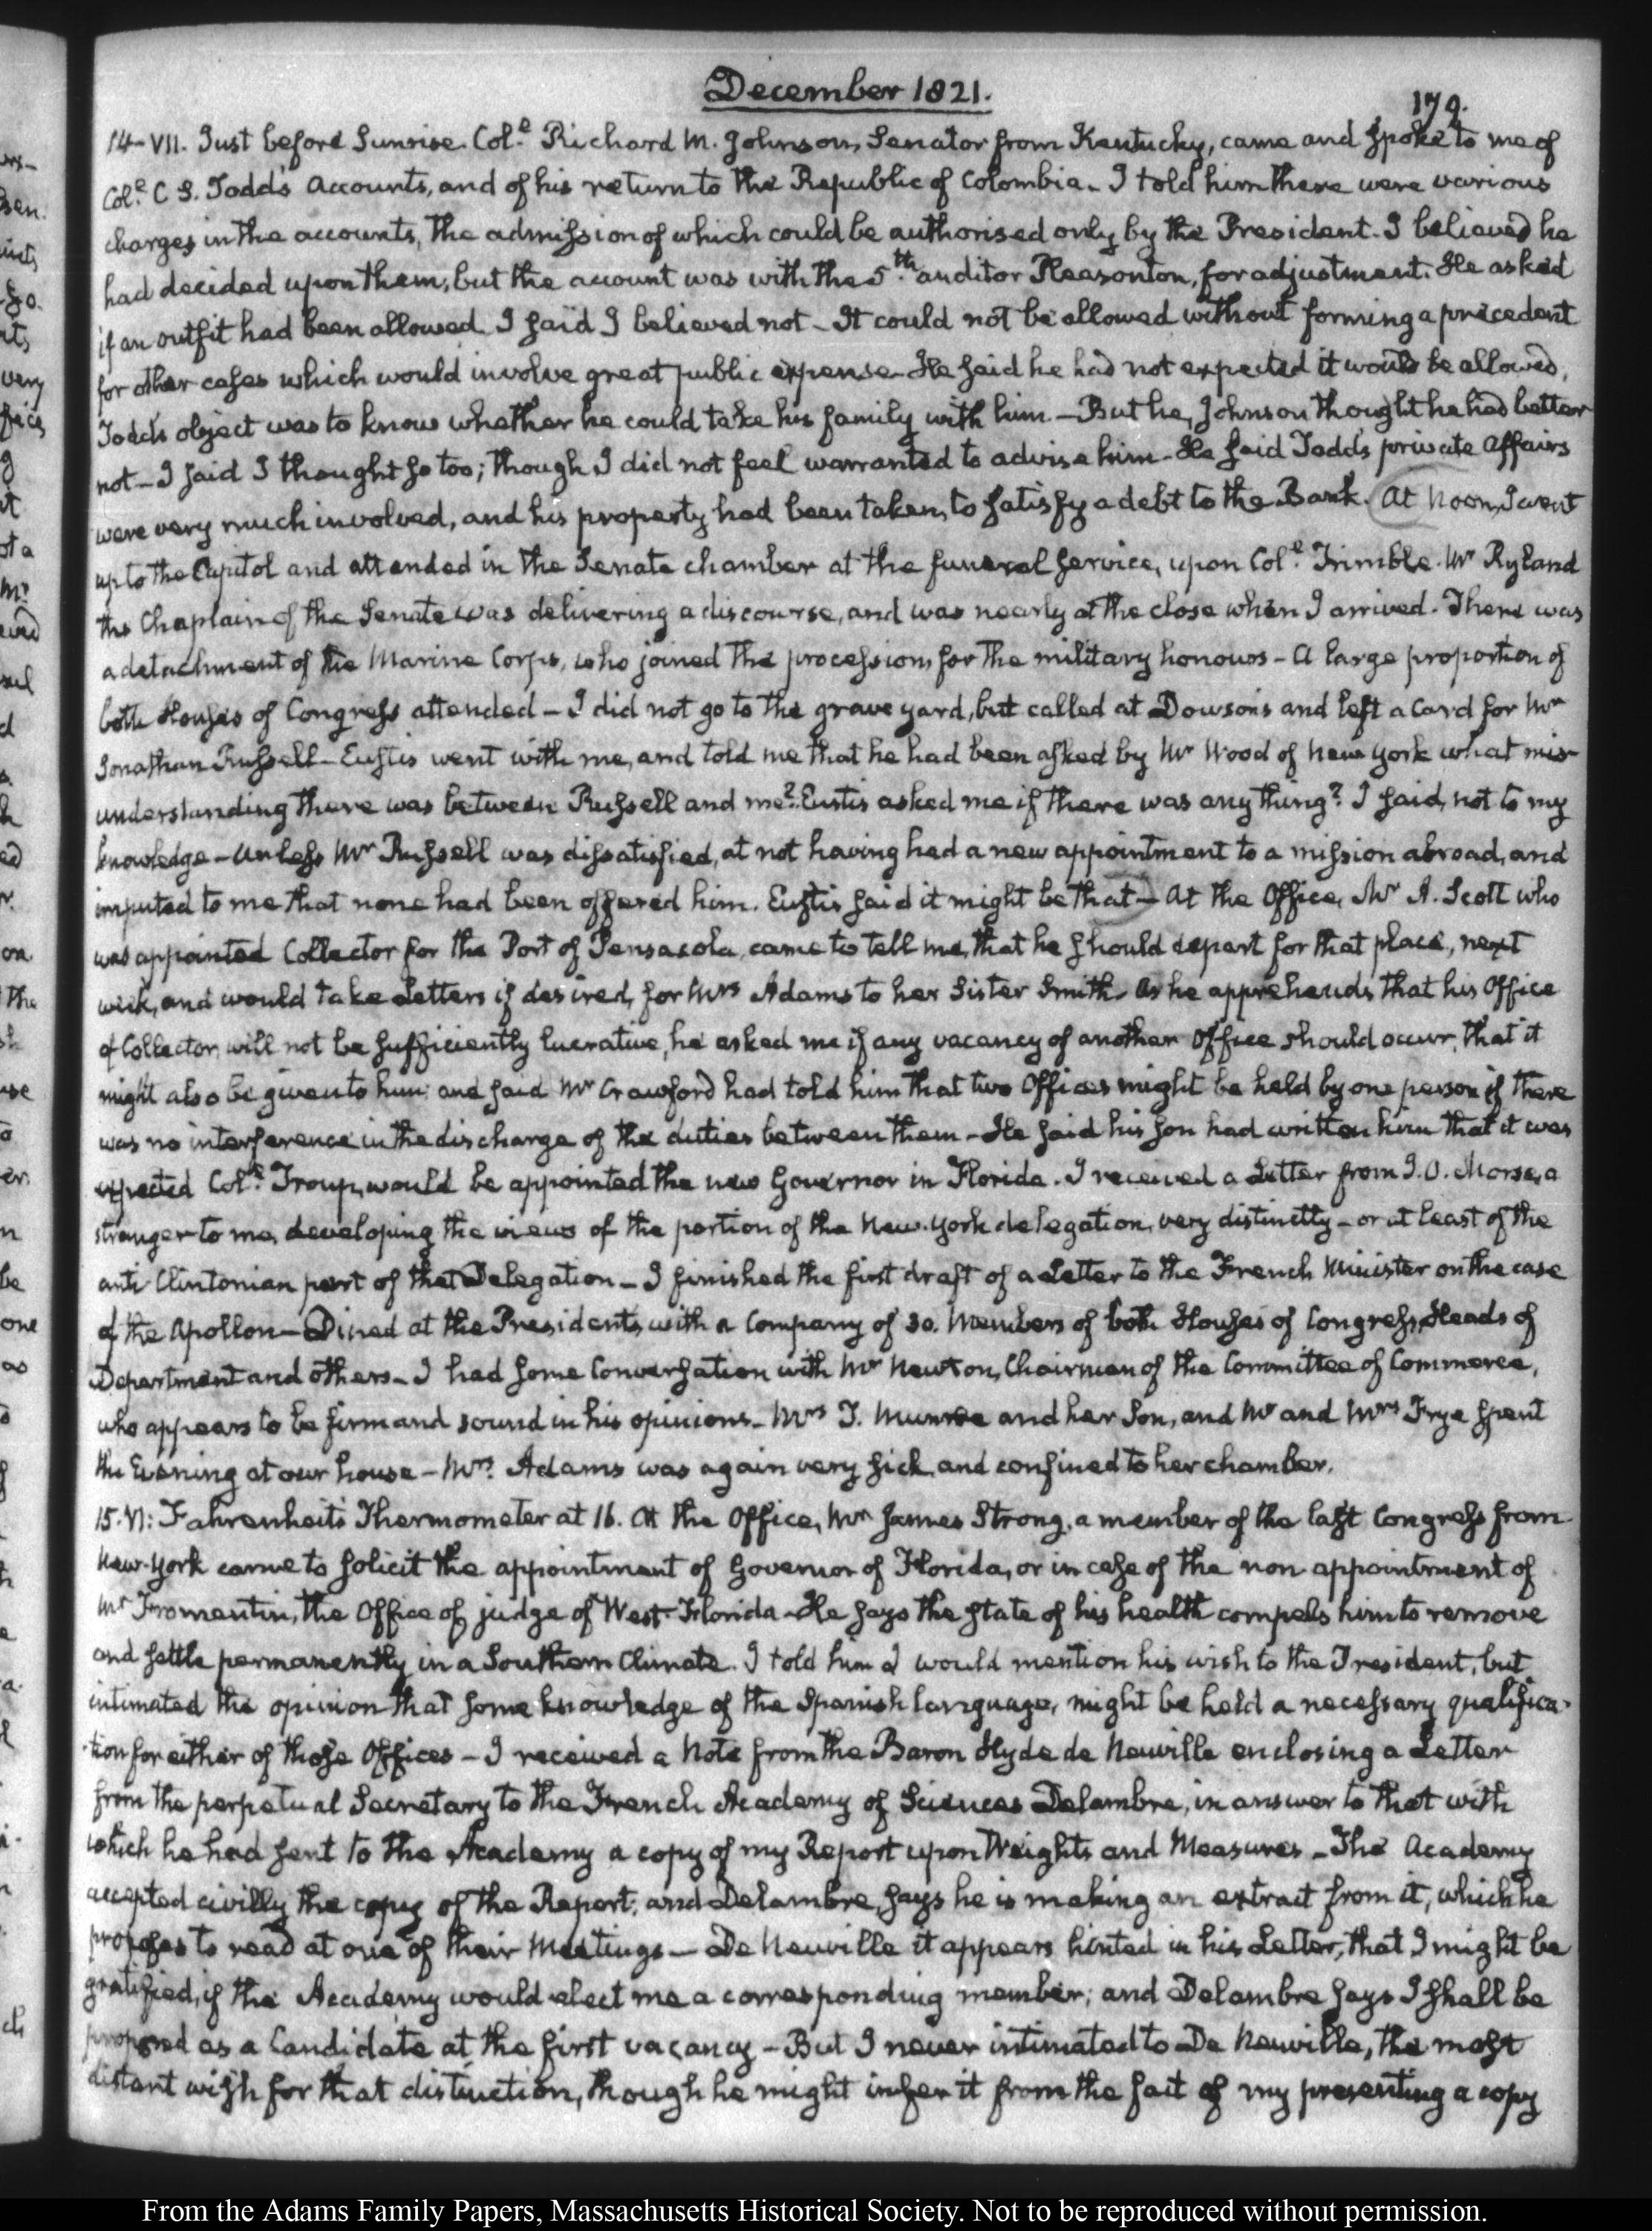 December 1821.
179.
14. VII. Just before Sunrise. Col.e Richard M. Johnson, Senator from Kentucky, came and spoke to me of
Col.e C S. Todd's Accounts, and of his return to the Republic of Colombia. I told him there were various
charges in the accounts, the admission of which could be authorised only by the President. I believed he
had decided upon them, but the account was with the 5.th auditor Pleasonton, for adjustment. He asked
if an outfit had been allowed. I said I believed not - It could not be allowed without forming a precedent
for other cases which would involve great public expense. He said he had not expected it would be allowed,
Todd's object was to know whether he could take his family with him - But he, Johnson thought he had better
not - I said I thought so too; though I did not feel warranted to advise him. He said Todd's private affairs
were very much involved, and his property had been taken, to satisfy a debt to the Bank. At Noon, I went
up to the Capitol and attended in the Senate chamber at the funeral service, upon Col.e Trimble. Mr Ryland
the Chaplain of the Senate was delivering a discourse, and was nearly at the close when I arrived. There was
a detachment of the Marine Corps, who joined the procession, for the military honours - A large proportion of
both Houses of Congress attended - I did not go to the grave yard, but called at Dowson's and left a Card for Mr
Jonathan Russell - Eustis went with me, and told me that he had been asked by Mr Wood of New York what mis-
understanding there was between Russell and me? Eustis asked me if there was any thing? I said, not to my
knowledge - Unless Mr Russell was dissatisfied, at not having had a new appointment to a mission abroad, and
imputed to me that none had been offered him. Eustis said it might be that - At the Office, Mr A. Scott who
was appointed Collector for the Port of Pensacola, came to tell me, that he should depart for that place, next
week, and would take Letters if desired, for Mrs Adams to her Sister Smith. As he apprehends that his Office
of Collector, will not be sufficiently lucrative, he asked me if any vacancy of another Office should occur, that it
might also be given to him; and said Mr Crawford had told him that two Offices might be held by one person if there
was no interference in the discharge of the duties between them - He said his son had written him that it was
expected Col.e Troup, would be appointed the new Governor in Florida. I received a Letter from J. O. Morse, a
stranger to me, developing the views of the portion of the New-York delegation, very distinctly - or at least of the
anti Clintonian part of that Delegation - I finished the first draft of a Letter to the French Minister on the case
of the Apollon - Dined at the President's, with a Company of 30. Members of both Houses of Congress, Heads of
Department and others - I had some Conversation with Mr Newton, Chairman of the Committee of Commerce,
who appears to be firm and sound in his opinions - Mrs T. Munroe and her Son, and Mr and Mrs Frye spent
the Evening at our house - Mrs Adams was again very sick, and confined to her chamber.
15. VI: Fahrenheit's Thermometer at 16. At the Office, Mr James Strong, a member of the last Congress from
New-York came to solicit the appointment of Governor of Florida, or in case of the non appointment of
Mr Fromentin, the Office of judge of West-Florida - He says the state of his health compels him to remove
and settle permanently in a Southern Climate. I told him I would mention his wish to the President, but
intimated the opinion that some knowledge of the Spanish language, might be held a necessary qualifica-
-tion for either of those Offices - I received a Note from the Baron Hyde de Neuville enclosing a Letter
from the perpetual Secretary to the French Academy of Sciences Delambre, in answer to that with
which he had sent to the Academy a copy of my Report upon Weights and Measures - The Academy
accepted civilly the copy of the Report; and Delambre, says he is making an extract from it, which he
proposes to read at one of their Meetings - De Neuville it appears hinted in his Letter, that I might be
gratified, if the Academy would elect me a corresponding member; and Delambre says I shall be
proposed as a Candidate at the first vacancy - But I never intimated to De Neuville, the most
distant wish for that distinction, though he might infer it from the fact of my presenting a copy
From the Adams Family Papers, Massachusetts Historical Society. Not to be reproduced without permission.